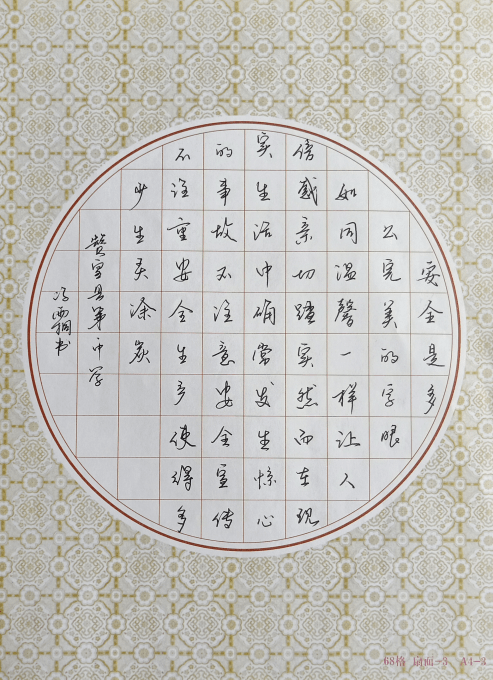 安全是多
么完美的字眼
如同温馨一样让人
倍感亲切踏实然而在现
实生活中确常发生惊心
的事故不注意安全宣传
不注重安全生产使得多
少生灵涂炭
县第一中学
冯 书
68格 扇面-3 A4-3